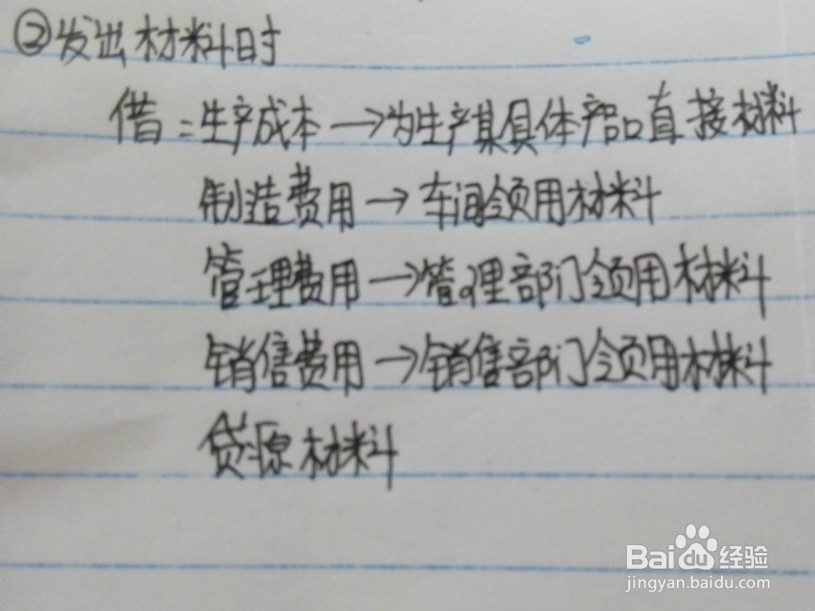 ②发出材料时
借:生产成本→为生产某具体产品直接材料
制造费用→车间领用材料
管理费用→管理部门领用材料
销售费用→销售部门领用材料
贷:原材料
Baidu经验
jingyan.baidu.com